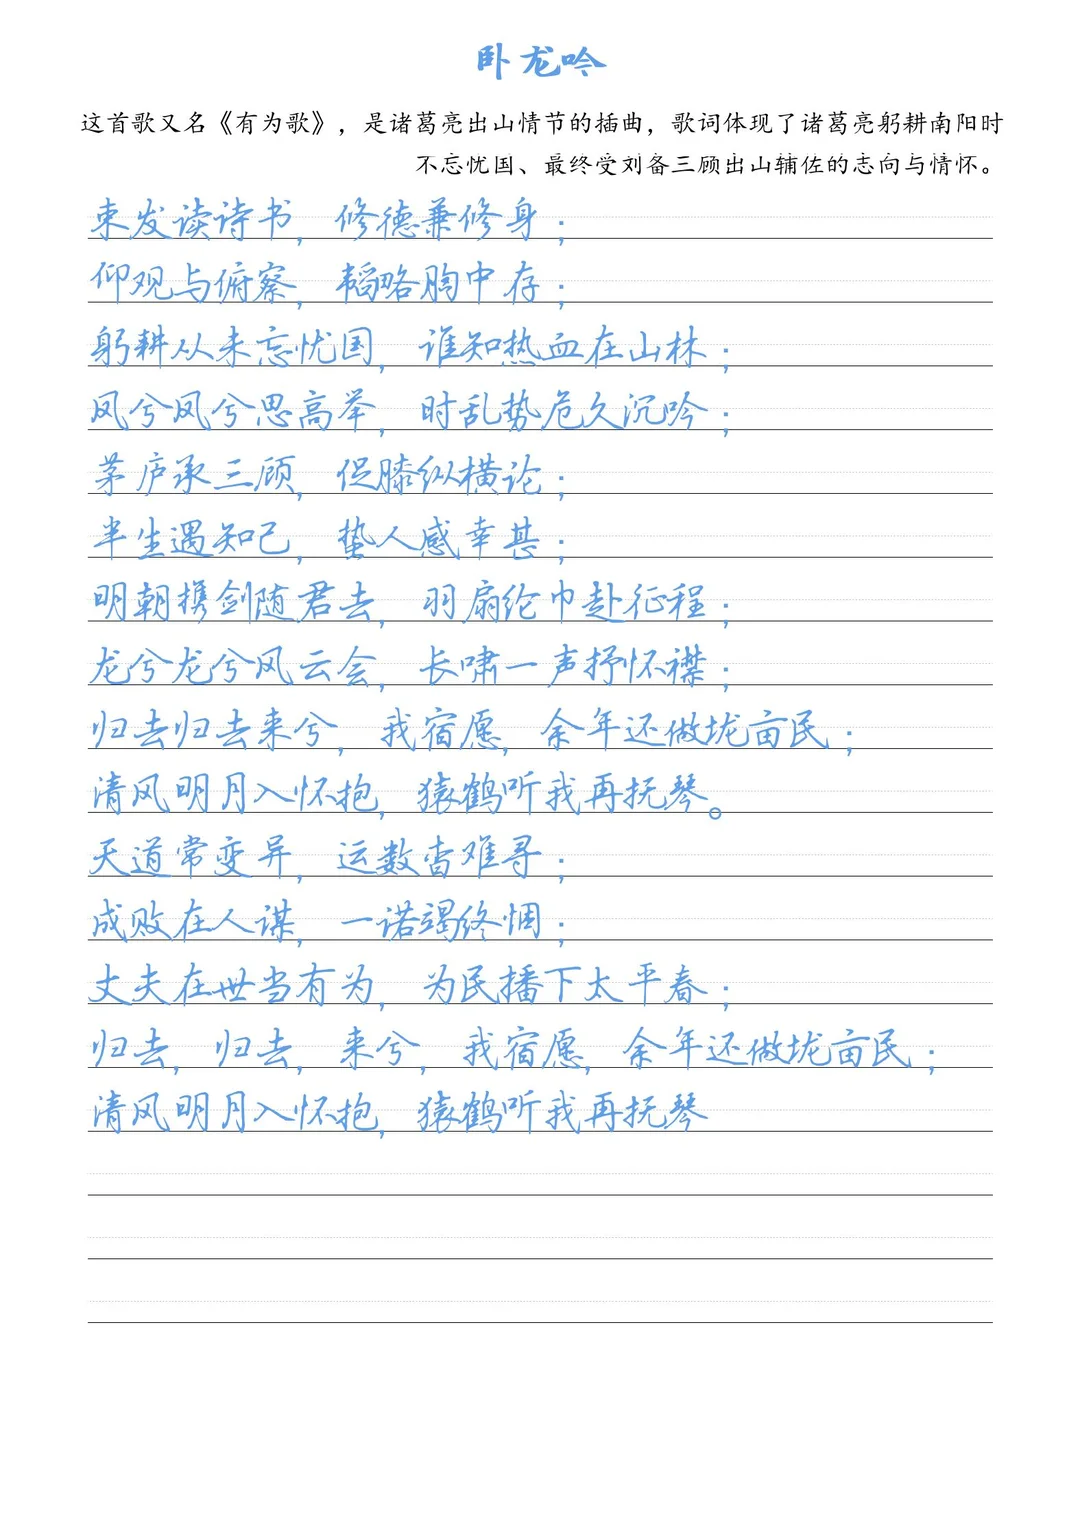 卧龙吟
这首歌又名《有为歌》，是诸葛亮出山情节的插曲，歌词体现了诸葛亮躬耕南阳时
不忘忧国、最终受刘备三顾出山辅佐的志向与情怀。
束发读诗书，修德兼修身；
仰观与俯察，韬略胸中存；
躬耕从未忘忧国，谁知热血在山林；
凤兮凤兮思高举，时乱势危久沉吟；
茅庐承三顾，促膝纵横论；
半生遇知己，蛰人感幸甚；
明朝携剑随君去，羽扇纶巾赴征程；
龙兮龙兮风云会，长啸一声抒怀襟；
归去归去来兮，我宿愿，余年还做垅亩民；
清风明月入怀抱，猿鹤听我再抚琴。
天道常变异，运数杳难寻；
成败在人谋，一诺竭终悃；
丈夫在世当有为，为民播下太平春；
归去，归去，来兮，我宿愿，余年还做垅亩民；
清风明月入怀抱，猿鹤听我再抚琴